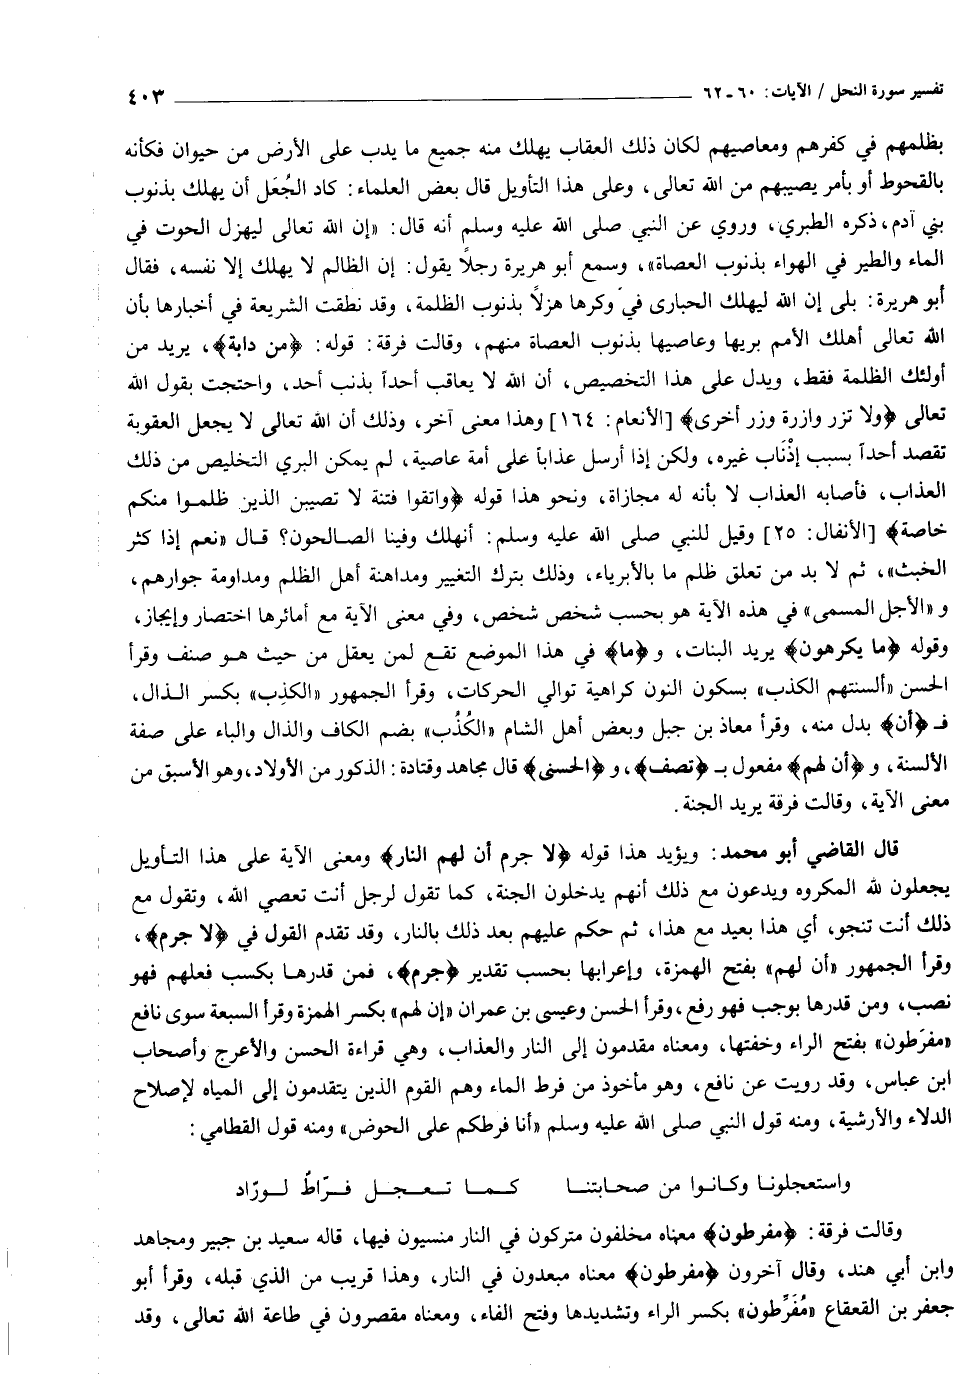 تفسير سورة النحل / الآيات: ٦٠ - ٦٢ ــــــــــــــــ ٤٠٣
بظلمهم في كفرهم ومعاصيهم لكان ذلك العقاب يهلك منه جميع ما يدب على الأرض من حيوان فكأنه
بالقحوط أو بأمر يصيبهم من الله تعالى، وعلى هذا التأويل قال بعض العلماء: كاد الجُعَل أن يهلك بذنوب
بني آدم، ذكره الطبري، وروي عن النبي صلى الله عليه وسلم أنه قال: «إن الله تعالى ليهزل الحوت في
الماء والطير في الهواء بذنوب العصاة»، وسمع أبو هريرة رجلاً يقول: إن الظالم لا يهلك إلا نفسه، فقال
أبو هريرة: بلى إن الله ليهلك الحبارى في وكرها هزلاً بذنوب الظلمة، وقد نطقت الشريعة في أخبارها بأن
الله تعالى أهلك الأمم بريها وعاصيها بذنوب العصاة منهم، وقالت فرقة: قوله: ﴿من دابة﴾، يريد من
أولئك الظلمة فقط، ويدل على هذا التخصيص، أن الله لا يعاقب أحداً بذنب أحد، واحتجت بقول الله
تعالى ﴿ولا تزر وازرة وزر أخرى﴾ [الأنعام: ١٦٤] وهذا معنى آخر، وذلك أن الله تعالى لا يجعل العقوبة
تقصد أحداً بسبب إذْنَاب غيره، ولكن إذا أرسل عذاباً على أمة عاصية، لم يمكن البري التخليص من ذلك
العذاب، فأصابه العذاب لا بأنه له مجازاة، ونحو هذا قوله ﴿واتقوا فتنة لا تصيبن الذين ظلموا منكم
خاصة﴾ [الأنفال: ٢٥] وقيل للنبي صلى الله عليه وسلم: أنهلك وفينا الصالحون؟ قال «نعم إذا كثر
الخبث»، ثم لا بد من تعلق ظلم ما بالأبرياء، وذلك بترك التغيير ومداهنة أهل الظلم ومداومة جوارهم،
و «الأجل المسمى» في هذه الآية هو بحسب شخص شخص، وفي معنى الآية مع أمائرها اختصار وإيجاز،
وقوله ﴿ما يكرهون﴾ يريد البنات، و ﴿ما﴾ في هذا الموضع تقع لمن يعقل من حيث هو صنف وقرأ
الحسن «ألسنتهم الكذب» بسكون النون كراهية توالي الحركات، وقرأ الجمهور «الكذِب» بكسر الذال،
فـ ﴿أن﴾ بدل منه، وقرأ معاذ بن جبل وبعض أهل الشام «الكُذُب» بضم الكاف والذال والباء على صفة
الألسنة، و ﴿أن لهم﴾ مفعول بـ ﴿تصف﴾، و ﴿الحسنى﴾ قال مجاهد وقتادة: الذكور من الأولاد، وهو الأسبق من
معنى الآية، وقالت فرقة يريد الجنة.
قال القاضي أبو محمد: ويؤيد هذا قوله ﴿لا جرم أن لهم النار﴾ ومعنى الآية على هذا التأويل
يجعلون لله المكروه ويدعون مع ذلك أنهم يدخلون الجنة، كما تقول لرجل أنت تعصي الله، وتقول مع
ذلك أنت تنجو، أي هذا بعيد مع هذا، ثم حكم عليهم بعد ذلك بالنار، وقد تقدم القول في ﴿لا جرم﴾،
وقرأ الجمهور «أن لهم» بفتح الهمزة، وإعرابها بحسب تقدير ﴿جرم﴾، فمن قدرها بكسب فعلهم فهو
نصب، ومن قدرها بوجب فهو رفع، وقرأ الحسن وعيسى بن عمران «إن لهم» بكسر الهمزة وقرأ السبعة سوى نافع
«مفرَطون» بفتح الراء وخفتها، ومعناه مقدمون إلى النار والعذاب، وهي قراءة الحسن والأعرج وأصحاب
ابن عباس، وقد رويت عن نافع، وهو مأخوذ من فرط الماء وهم القوم الذين يتقدمون إلى المياه لإصلاح
الدلاء والأرشية، ومنه قول النبي صلى الله عليه وسلم «أنا فرطكم على الحوض» ومنه قول القطامي:
واستعجلونا وكانوا من صحابتنا كما تعجل فرّاطٌ لورّاد
وقالت فرقة: ﴿مفرطون﴾ معناه مخلفون متركون في النار منسيون فيها، قاله سعيد بن جبير ومجاهد
وابن أبي هند، وقال آخرون ﴿مفرطون﴾ معناه مبعدون في النار، وهذا قريب من الذي قبله، وقرأ أبو
جعفر بن القعقاع «مُفَرِّطون» بكسر الراء وتشديدها وفتح الفاء، ومعناه مقصرون في طاعة الله تعالى، وقد